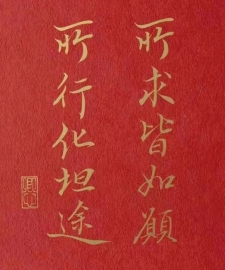 所求皆如願
所行化坦途